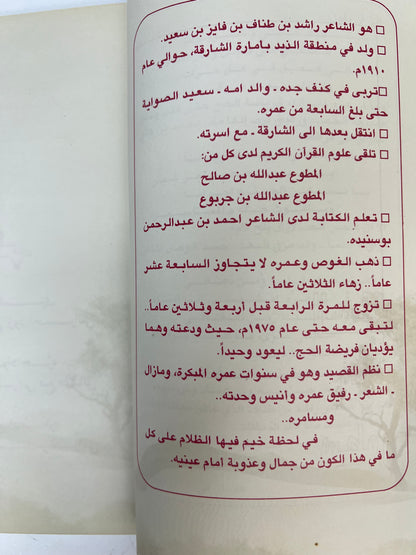 □ هو الشاعر راشد بن طناف بن فايز بن سعيد.
□ ولد في منطقة الذيد بامارة الشارقة، حوالي عام
١٩١٠م.
□تربى في كنف جده ـ والد امه ـ سعيد الصوابة
حتى بلغ السابعة من عمره.
□ انتقل بعدها الى الشارقة ـ مع اسرته.
□ تلقى علوم القرآن الكريم لدى كل من:
المطوع عبدالله بن صالح
المطوع عبدالله بن جربوع
□ تعلم الكتابة لدى الشاعر احمد بن عبدالرحمن
بوسنيده.
□ ذهب الغوص وعمره لا يتجاوز السابعة عشر
عاماً.. زهاء الثلاثين عاماً.
□ تزوج للمرة الرابعة قبل أربعة وثلاثين عاماً..
لتبقى معه حتى عام ١٩٧٥م، حيث ودعته وهما
يؤديان فريضة الحج.. ليعود وحيداً.
□ نظم القصيد وهو في سنوات عمره المبكرة، ومازال
ـ الشعر ـ رفيق عمره وأنيس وحدته..
ومسامره..
في لحظة خيم فيها الظلام على كل
ما في هذا الكون من جمال وعذوبة أمام عينيه.